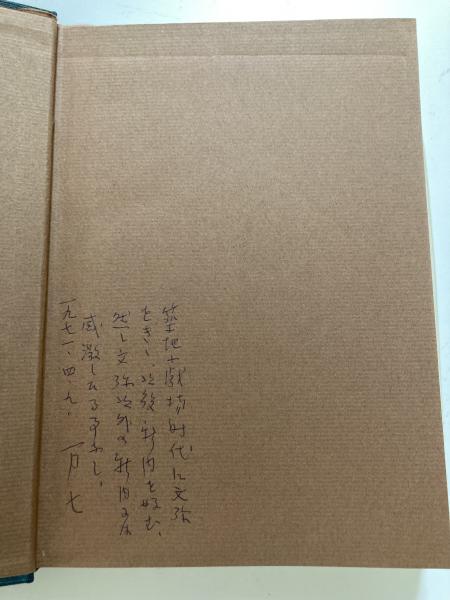 築地小劇場時代に文弥
をきゝ、以後、新内を好む、
然し文弥以外の新内には
感激したる事なし。
一九七一、四、九、